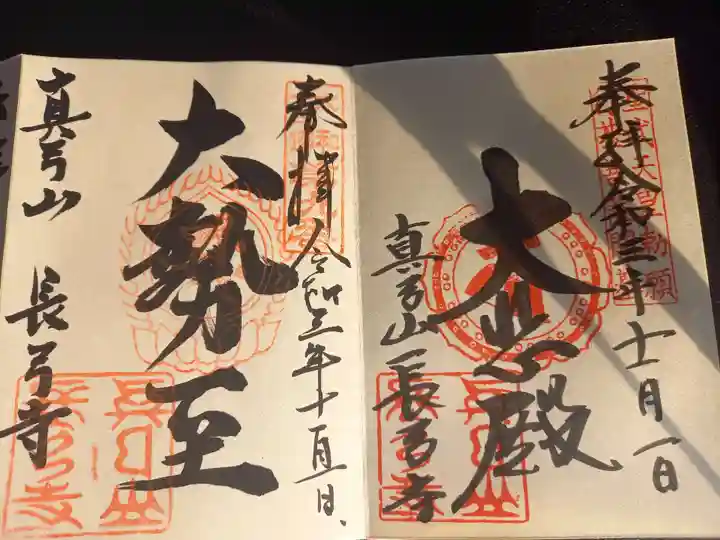 奉拝 令和三年十一月一日
大悲殿
真弓山 長弓寺
聖武天皇勅願
奉拝 令和三年十一月一日、
大勢至
真弓山 長弓寺